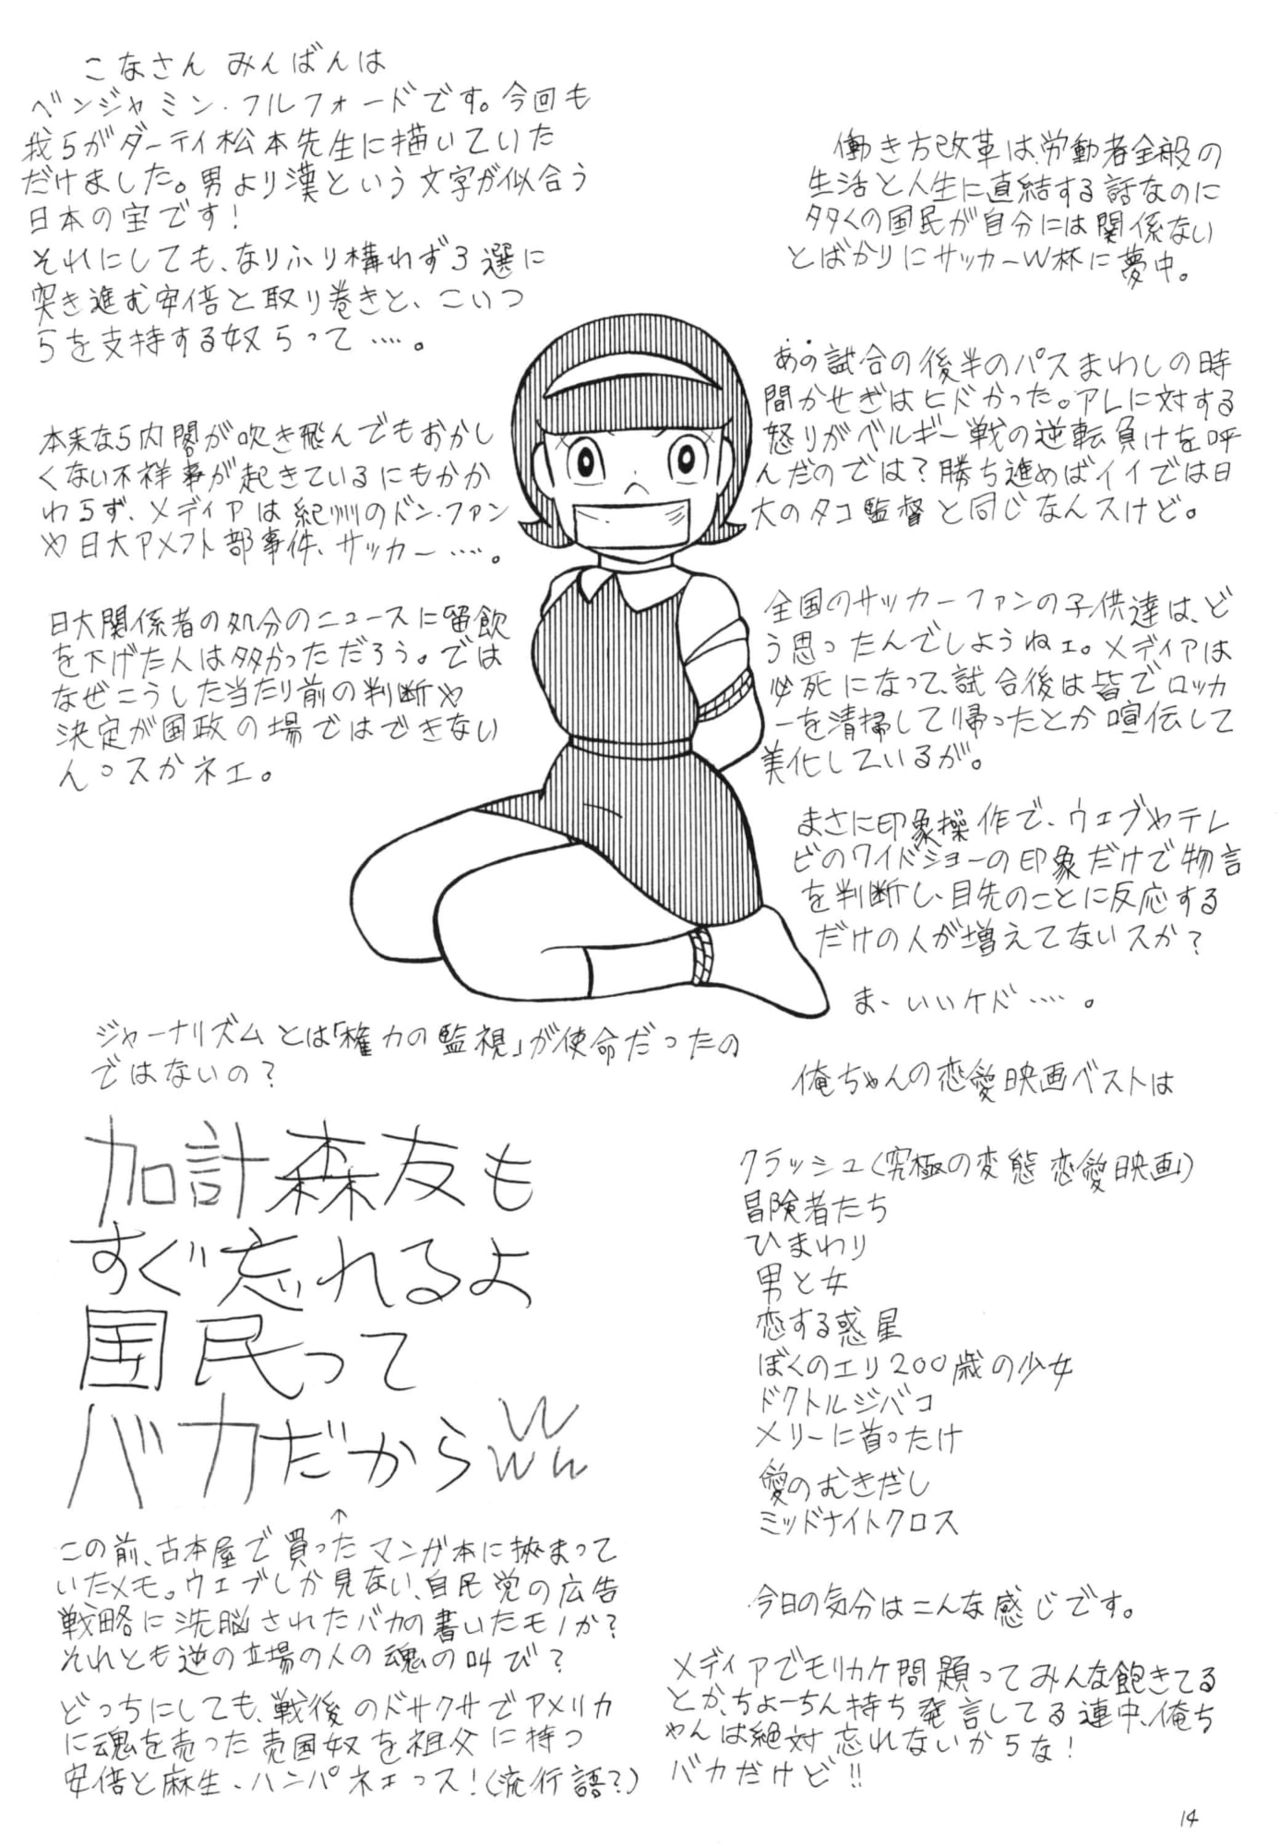 こなさん みんばんは
ベンジャミン・フルフォードです。今回も
我らがダーティ松本先生に描いていた
だけました。男より漢という文字が似合う
日本の宝です!
それにしても、なりふり構わず3選に
突き進む安倍と取り巻きと、こいつ
らを支持する奴らって……。
本来なら内閣が吹き飛んでもおかし
くない不祥事が起きているにもかか
わらず、メディアは紀州のドン・ファン
や日大アメフト部事件、サッカー……。
日大関係者の処分のニュースに留飲
を下げた人は多かっただろう。では
なぜこうした当たり前の判断や
決定が国政の場ではできない
んっスかネェ。
ジャーナリズムとは「権力の監視」が使命だったの
ではないの?
加計森友も
すぐ忘れるよ
国民って
バカだからwwww
↑
この前、古本屋で買ったマンガ本に挾まって
いたメモ。ウェブしか見ない、自民党の広告
戦略に洗脳されたバカの書いたモノか?
それとも逆の立場の人の魂の叫び?
どっちにしても、戦後のドサクサでアメリカ
に魂を売った売国奴を祖父に持つ
安倍と麻生、ハンパネェっス!(流行語?)
働き方改革は、労働者全般の
生活と人生に直結する話なのに
多くの国民が自分には関係ない
とばかりにサッカーW杯に夢中。
あの試合の後半のパスまわしの時
間かせぎはヒドかった。アレに対する
怒りがベルギー戦の逆転負けを呼
んだのでは?勝ち進めばイイでは日
大のタコ監督と同じなんスけど。
全国のサッカーファンの子供達は、ど
う思ったんでしょうねェ。メディアは
必死になって、試合後は皆でロッカ
ーを清掃して帰ったとか喧伝して
美化しているが。
まさに印象操作で、ウェブやテレ
ビのワイドショーの印象だけで物言
を判断し、目先のことに反応する
だけの人が増えてないスか?
ま、いいケド……。
俺ちゃんの恋愛映画ベストは
クラッシュ(究極の変態恋愛映画!)
冒険者たち
ひまわり
男と女
恋する惑星
ぼくのエリ200歳の少女
ドクトルジバコ
メリーに首ったけ
愛のむきだし
ミッドナイトクロス
今日の気分はこんな感じです。
メディアでモリカケ問題ってみんな飽きてる
とか、ちょーちん持ち発言してる連中、俺ち
ゃんは絶対忘れないからな!
バカだけど!!
14